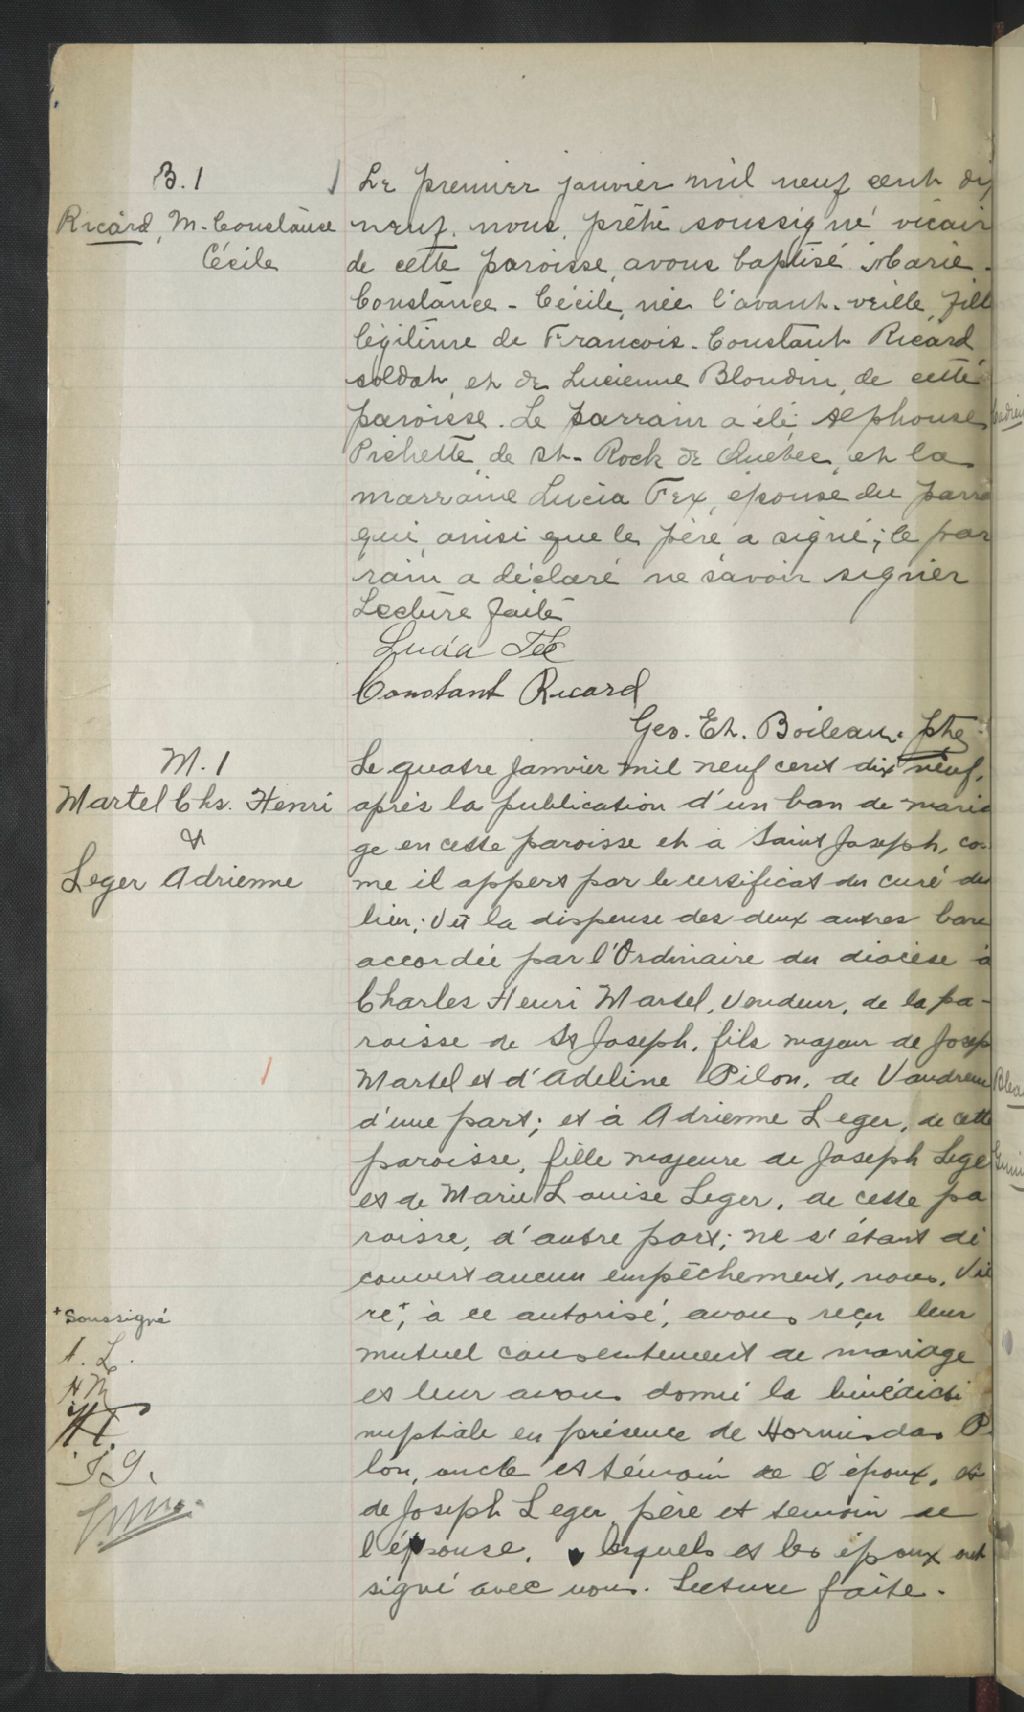 B.1
Ricard, M. Constance
Cécile
Le premier janvier mil neuf cent dix
neuf, nous, prêtre soussigné vicair
de cette paroisse, avons baptisé Marie-
Constance-Cécile, née l'avant-veille, fill
légitime de Francois-Constant Ricard
soldat, et de Lucienne Blondin, de cette
paroisse. Le parrain a été Alphonse
Pichette, de St-Rock de Québec, et la
marraine Lucia Fex, épouse du parra
qui, ainsi que le père a signé; le par
rain a déclaré ne savoir signer
Lecture faite
Lucia
Constant Ricard
Geo. Et. Boileau. ptre
M.1
Martel Chs. Henri
&
Leger Adrienne
Le quatre Janvier mil neuf cent dix neuf,
après la publication d'un ban de maria
ge en cette paroisse et à Saint Joseph, co-
me il appert par le certificat du curé du
lieu; Vu la dispense des deux autres bans
accordée par l'Ordinaire du diocèse à
Charles Henri Martel, Vendeur, de la pa-
roisse de St Joseph, fils majeur de Josep
Martel et d'Adeline Pilon, de Vaudreui
d'une part; et à Adrienne Leger, de cette
paroisse, fille majeure de Joseph Lege
et de Marie Louise Leger, de cette pa
roisse, d'autre part; ne s'étant dé
couvert aucun empêchement, nous, Vic
re+, à ce autorisé, avons reçu leur
mutuel consentement de mariage
et leur avons donné la bénédicti
nuptiale en présence de Hormisdas P
lon, oncle et témoin de l'époux, et
de Joseph Leger, père et temoin de
l'épouse, lesquels et les époux ont
signé avec nous. Lecture faite.
+ soussigné
A. L.
H M
J. L.